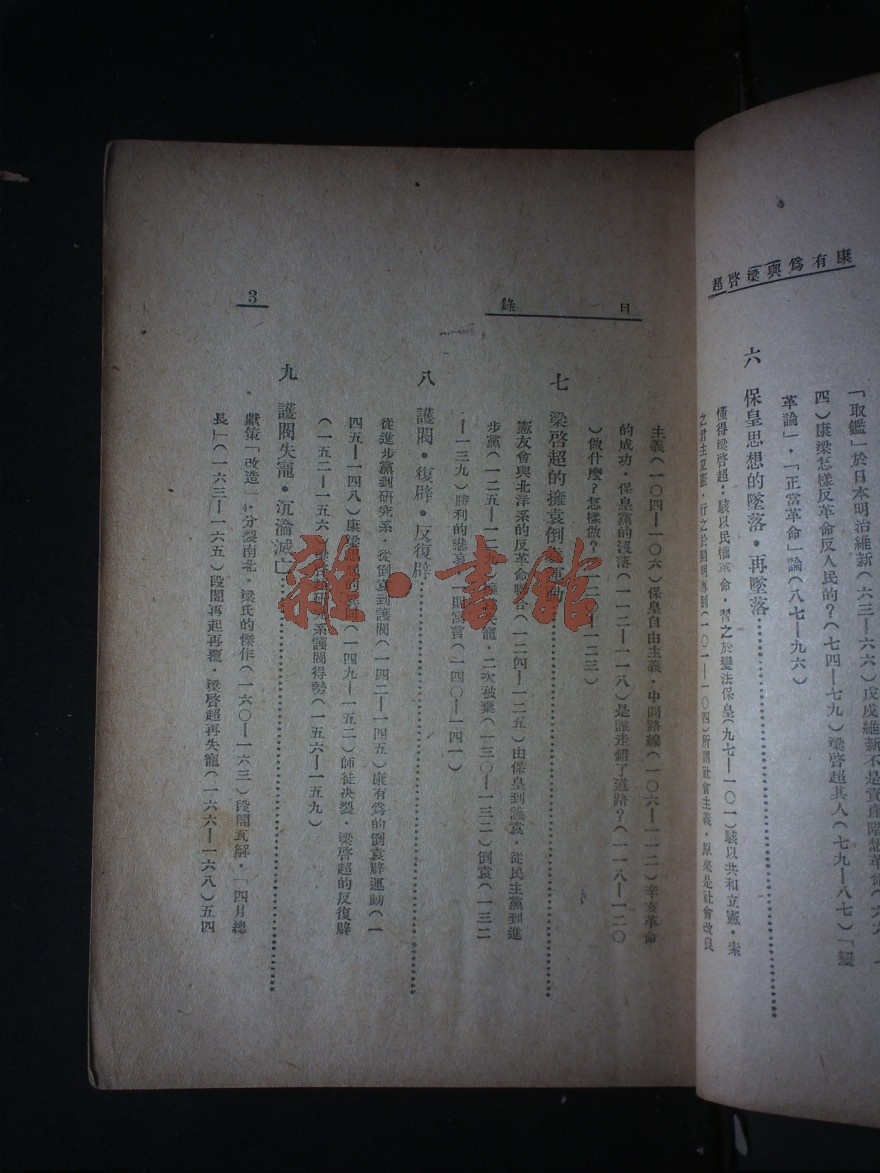 康有爲與梁啓超
「取鑑」於日本明治維新(六三—六六)戊戌維新不是資產階級革命(六六—七
四)康梁怎樣反革命反人民的?(七四—七九)梁啓超其人(七九—八七)「變
革論」・「正當革命」論(八七—九六)
六 保皇思想的墜落・再墜落
懂得梁啓超:駭以民權革命,習之於變法保皇(九七—一〇一)駭以共和立憲,索
之君主立憲,行之於開明專制(一〇一—一〇四)所謂社會主義,原來是社會改良
目錄
主義(一〇四—一〇六)保皇自由主義・中間路線(一〇六—一一二)辛亥革命
的成功・保皇黨的沒落(一一二—一一八)是誰走錯了道路?(一一八—一二〇
)做什麼?怎樣做?(一二一—一二三)
七 梁啓超的擁袁倒
憲友會與北洋系的反革命聯合(一二四—一二五)由保皇到護袁・從民主黨到進
步黨(一二五—一三 失寵・二次被棄(一三〇—一三二)倒袁(一三二
—一三九)勝利的悲哀 一則寓言(一四〇—一四一)
八 護閥・復辟・反復辟
從進步黨到研究系・從倒袁到護閥(一四二—一四五)康有爲的倒袁辟運動(一
四五—一四八)康梁 (一四九—一五二)師徒决裂・梁啓超的反復辟
(一五二—一五六 研究系護閥得勢(一五六—一五九)
九 護閥失寵・沉淪滅亡
獻策「改造」・分裂南北・梁氏的傑作(一六〇—一六三)段閥瓦解・「四月總
長」(一六三—一六五)段閥再起再覆・梁啓超再失寵(一六六—一六八)五四
3
雜・書館